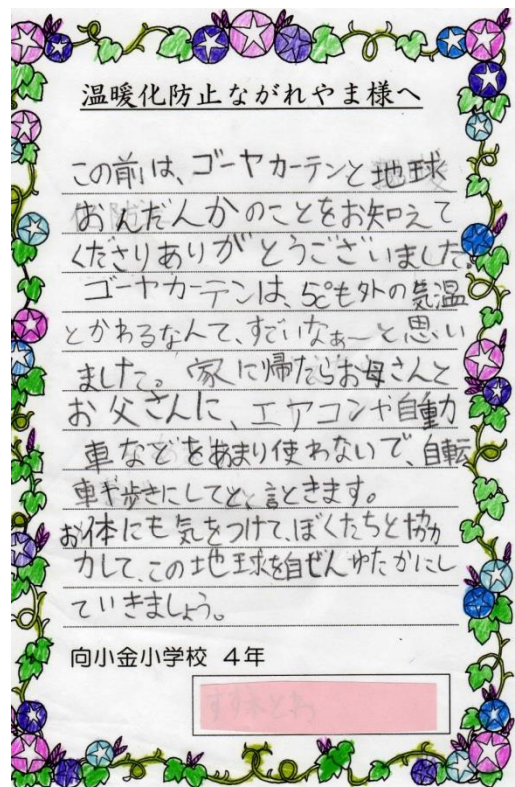 温暖化防止ながれやま様へ
この前は、ゴーヤカーテンと地球
おんだんかのことをお知えて
くださりありがとうございました。
ゴーヤカーテンは、5℃も外の気温
とかわるなんて、すごいなぁ〜と思い
ました。家に帰たらお母さんと
お父さんに、エアコンや自動
車などをあまり使わないで、自転
車や歩きにしてと、言ときます。
お体にも気をつけて、ぼくたちと協
力して、この地球を自ぜんゆたかにし
ていきましょう。
向小金小学校 4年